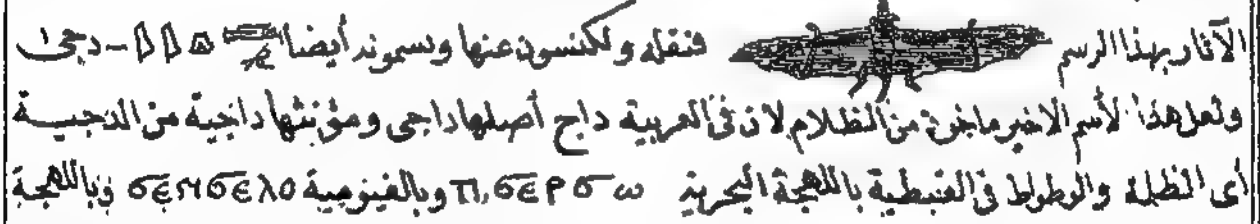 الآثار بهذا الرسم فنقله ولكنسون عنها ويسمونه أيضا - دجى ا
ولعل هذا الأسم الاخير ماخوذ من الظلام لان فى العربية داج أصلها داجى ومؤنثها داجية من الدجيـة
أى الظلمة والوطواط فى القبطية باللهجة البحرية ⲡⲓ,ϭⲉⲣϭⲱ وبالفيومية ϭⲉⲙϭⲉⲗⲟ وباللهجة